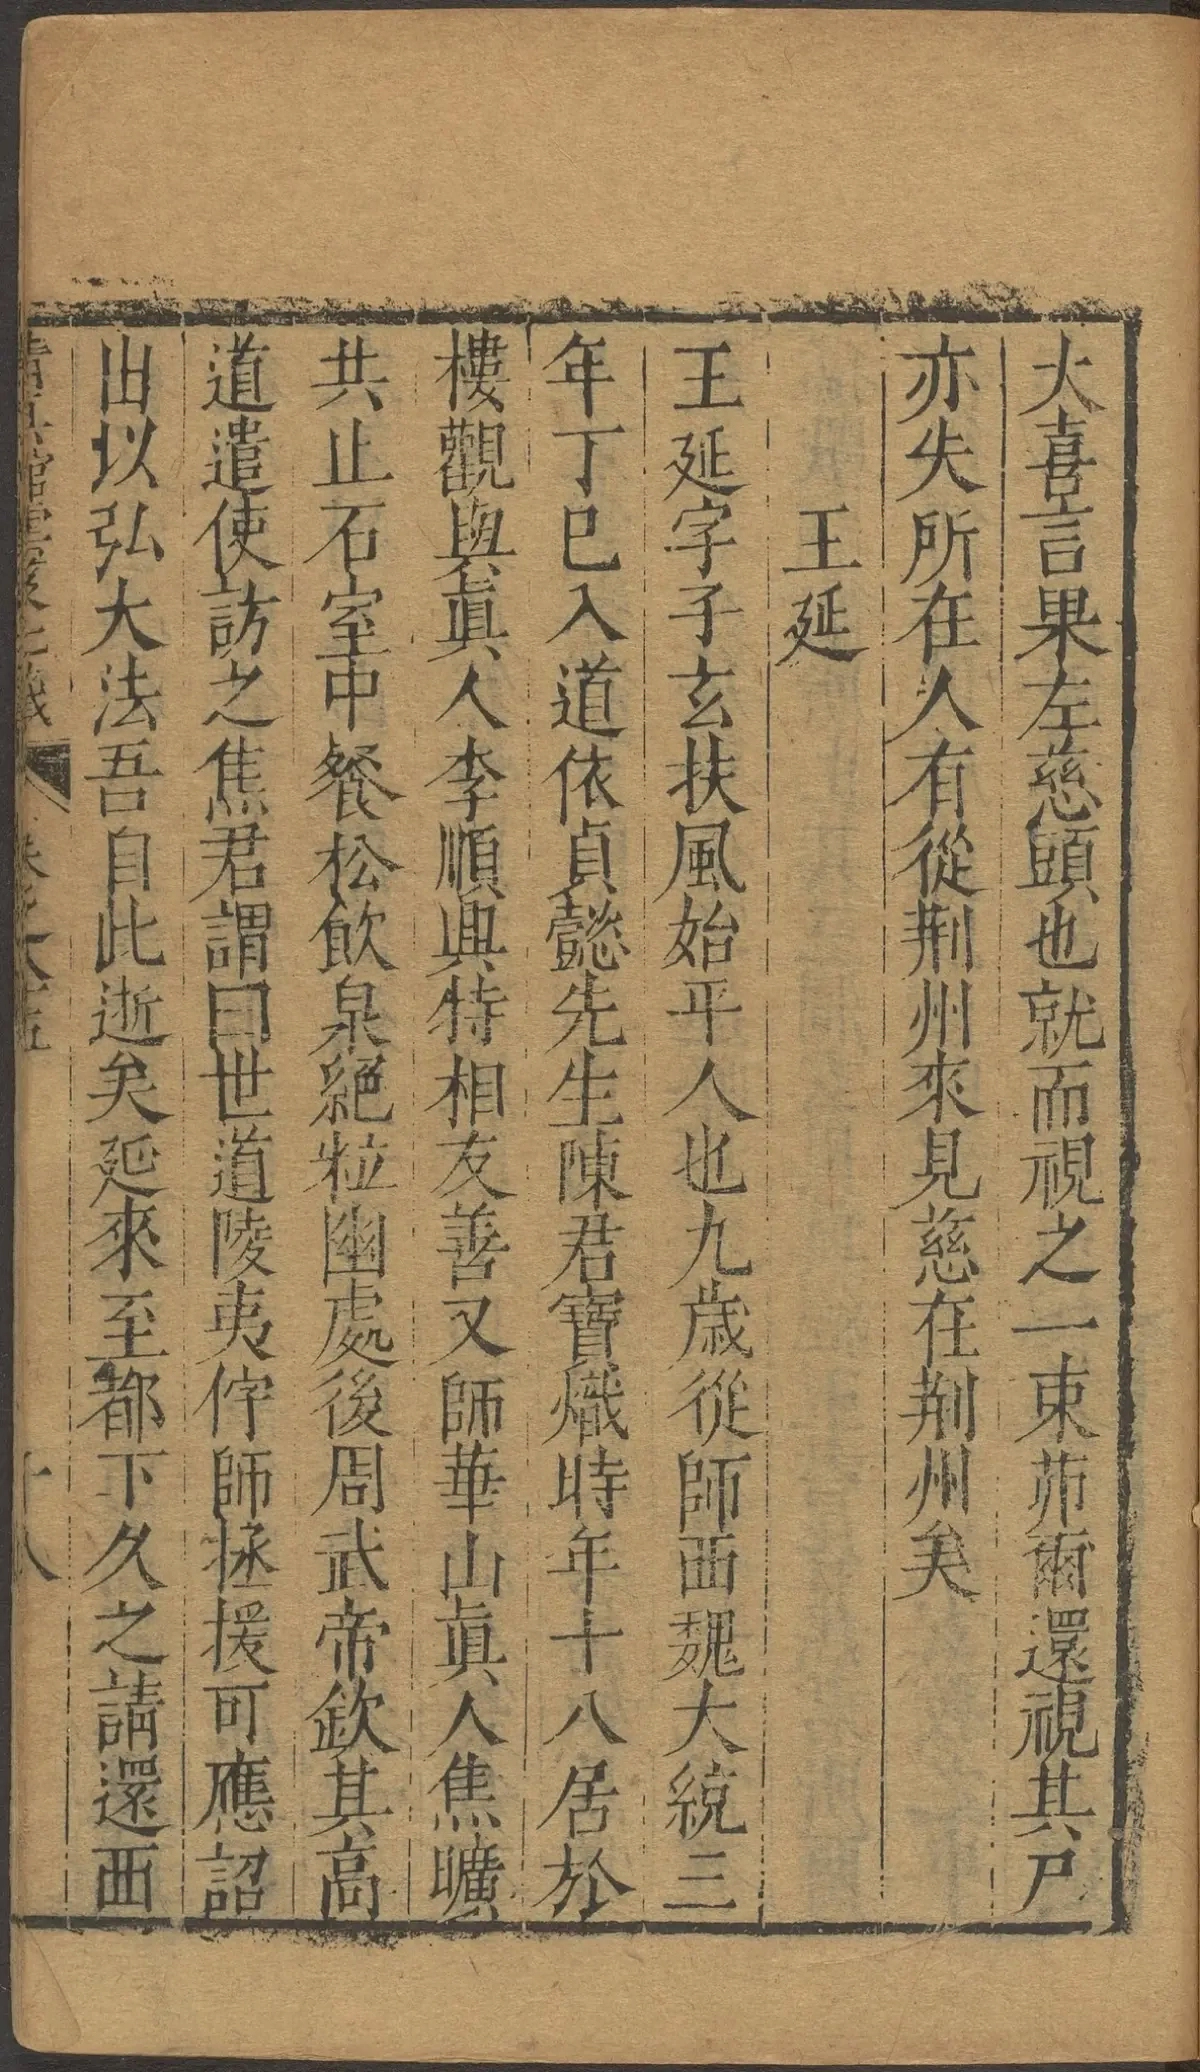 大喜言果左慈頭也就而視之一束茆爾還視其尸
亦失所在人有從荆州來見慈在荆州矣
王延
王延字子玄扶風始平人也九歳從師西魏大統三
年丁巳入道依貞懿先生陳君寶熾時年十八居於
樓觀與眞人李順興特相友善又師華山眞人焦曠
共止石室中餐松飲泉絕粒幽處後周武帝欽其高
道遣使訪之焦君謂曰世道陵夷佇師拯援可應詔
出以弘大法吾自此逝矣延來至都下久之請還西
十八